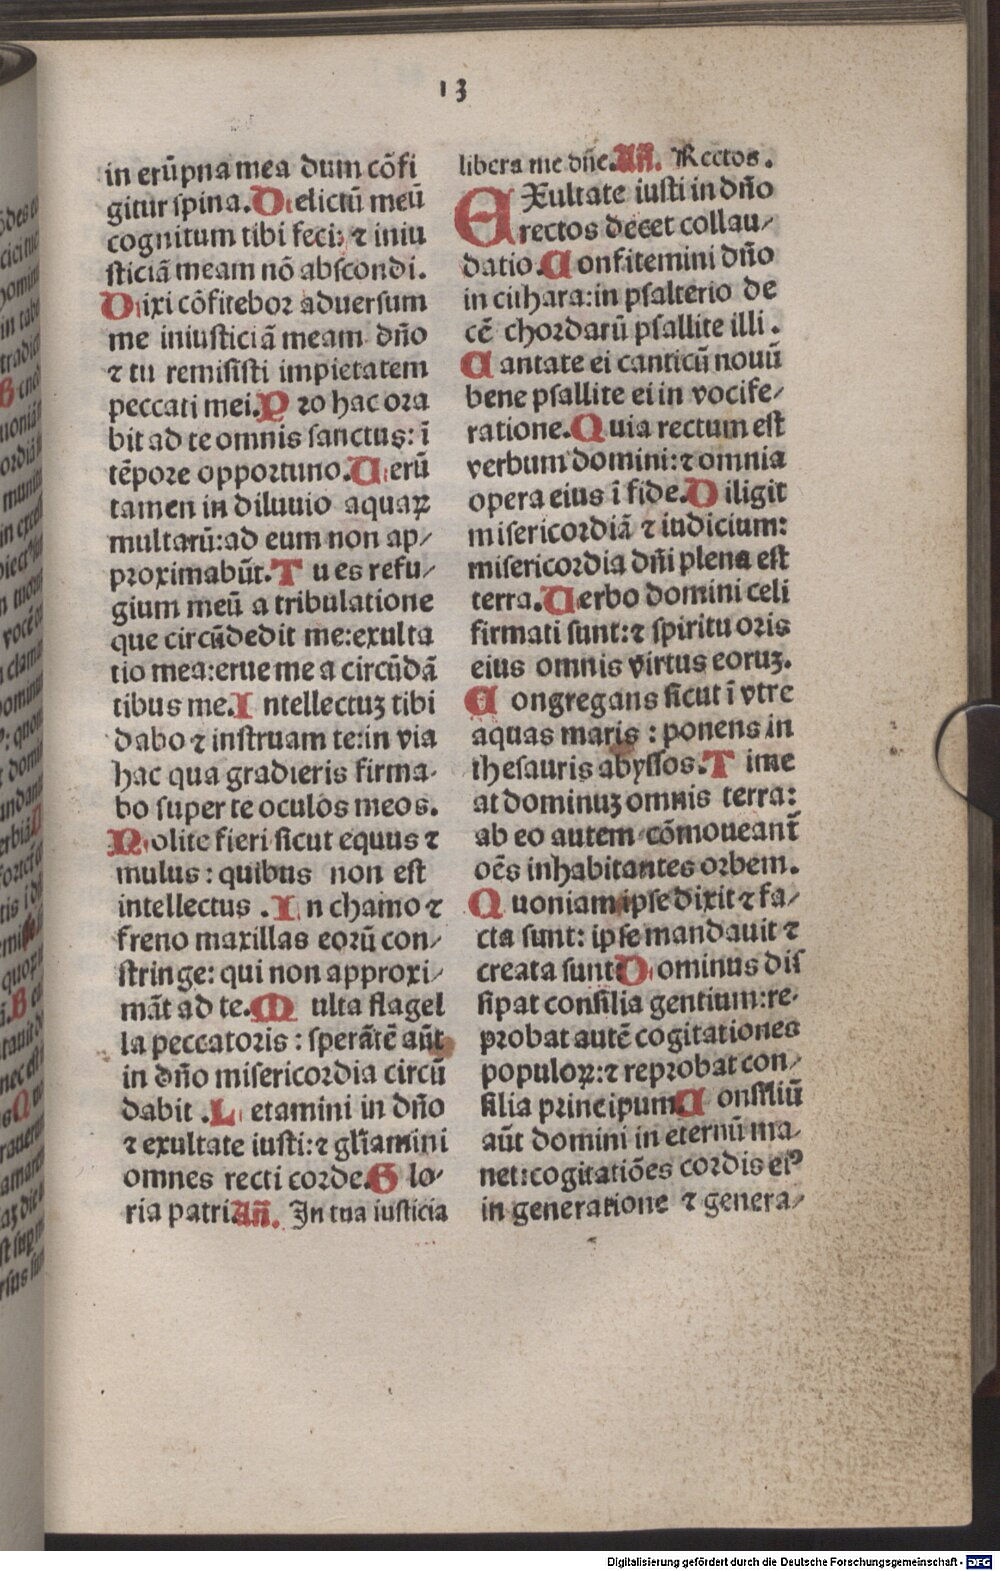 13
in erūpna mea dum cōfi
gitur spina. Delictū meū
cognitum tibi feci: ⁊ iniu
sticiā meam nō abscondi.
Dixi cōfitebor aduersum
me iniusticiā meam dn̄o
⁊ tu remisisti impietatem
peccati mei. Pro hac ora
bit ad te omnis sanctus: ī
tēpore opportuno. Uerū
tamen in diluuio aquaꝝ
multarū: ad eum non ap/
proximabūt. Tu es refu/
gium meū a tribulatione
que circūdedit me: exulta
tio mea: erue me a circūdā
tibus me. Intellectuꝫ tibi
dabo ⁊ instruam te: in via
hac qua gradieris firma-
bo super te oculos meos.
Nolite fieri sicut equus ⁊
mulus: quibus non est
intellectus. In chamo ⁊
freno maxillas eorū con/
stringe: qui non approxi/
māt ad te. Multa flagel
la peccatoris: sperātē aūt
in dn̄o misericordia circū
dabit. Letamini in dn̄o
⁊ exultate iusti: ⁊ gl̄iamini
omnes recti corde. Glo-
ria patri Añ. In tua iusticia
libera me dn̄e. Añ. Rectos.
EXultate iusti in dn̄o
rectos decet collau/
datio. Confitemini dn̄o
in cithara: in psalterio de
cē chordarū psallite illi.
Cantate ei canticū nouū
bene psallite ei in vocife/
ratione. Quia rectum est
verbum domini: ⁊ omnia
opera eius ī fide. Diligit
misericordiā ⁊ iudicium:
misericordia dn̄i plena est
terra. Uerbo domini celi
firmati sunt: ⁊ spiritu oris
eius omnis virtus eoruꝫ.
Congregans sicut ī vtre
aquas maris: ponens in
thesauris abyssos. Time
at dominuꝫ omnis terra:
ab eo autem cōmoueant̄
oēs inhabitantes orbem.
Quoniam ipse dixit ⁊ fa/
cta sunt: ipse mandauit ⁊
creata sunt Dominus dis
sipat consilia gentium: re-
probat autē cogitationes
populoꝝ: ⁊ reprobat con/
silia principum. Consiliū
aūt domini in eternū ma-
net: cogitatiōes cordis eiꝰ
in generatione ⁊ genera/
Digitalisierung gefördert durch die Deutsche Forschungsgemeinschaft - DFG